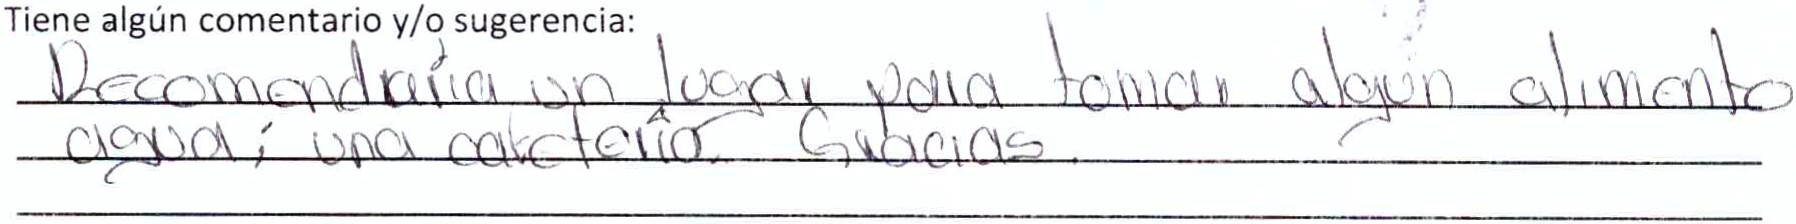 Tiene algún comentario y/o sugerencia:
Recomendraría un lugar para tomar algún alimento
agua; una cafetería. Gracias.